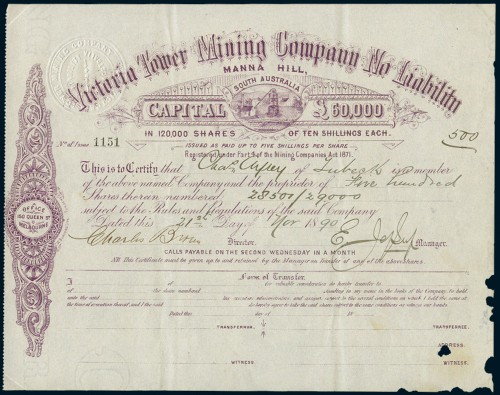 Victoria Tower Mining Company No Liability
MANNA HILL,
SOUTH AUSTRALIA
CAPITAL £60,000
IN 120,000 SHARES OF TEN SHILLINGS EACH.
ISSUED AS PAID UP TO FIVE SHILLINGS PER SHARE
Registered under Part 2 of the Mining Companies Act 1871.
No of Issue 1151
500
This is to Certify that Chas of Lubeck is a member
of the above named Company and the proprietor of Five hundred
Shares therein numbered 28501/29000
subject to the Rules and Regulations of the said Company
Dated this 21st Day of Nov 1890
Charles Director. E Manager.
CALLS PAYABLE ON THE SECOND WEDNESDAY IN A MONTH
NB This Certificate must be given up to and retained by the Manager on transfer of any of the above shares.
OFFICE
150 QUEEN ST
MELBOURNE
Form of Transfer.
I of for valuable consideration do hereby transfer to
of the share numbered standing in my name in the books of the Company to hold
unto the said his executors administrators and assigns subject to the several conditions on which I held the same at
the time of execution thereof; and I the said do hereby agree to take the said share subject to the same conditions as witness our hands.
Dated this day of 18
TRANSFEROR. TRANSFEREE.
ADDRESS.
WITNESS. WITNESS.